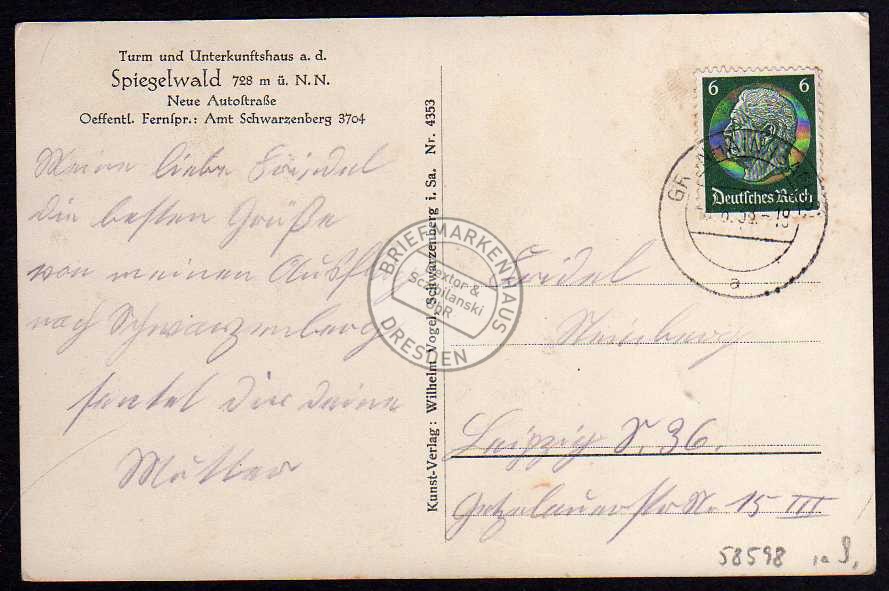 Turm und Unterkunftshaus a. d.
Spiegelwald 728 m ü. N. N.
Neue Autostraße
Oeffentl. Fernspr.: Amt Schwarzenberg 3704
Meine liebe Friedel
die besten Grüße
von meinen Ausflug
nach Schwarzenberg
sendet dir deine
Mutter
Kunst-Verlag: Wilhelm Vogel, Schwarzenberg i. Sa. Nr. 4353
BRIEFMARKENHAUS
Sextor &
Scibilanski
GbR
DRESDEN
6 6
Deutsches Reich
a
Friedel
Leipzig S. 36.
Nr 15 III
58598